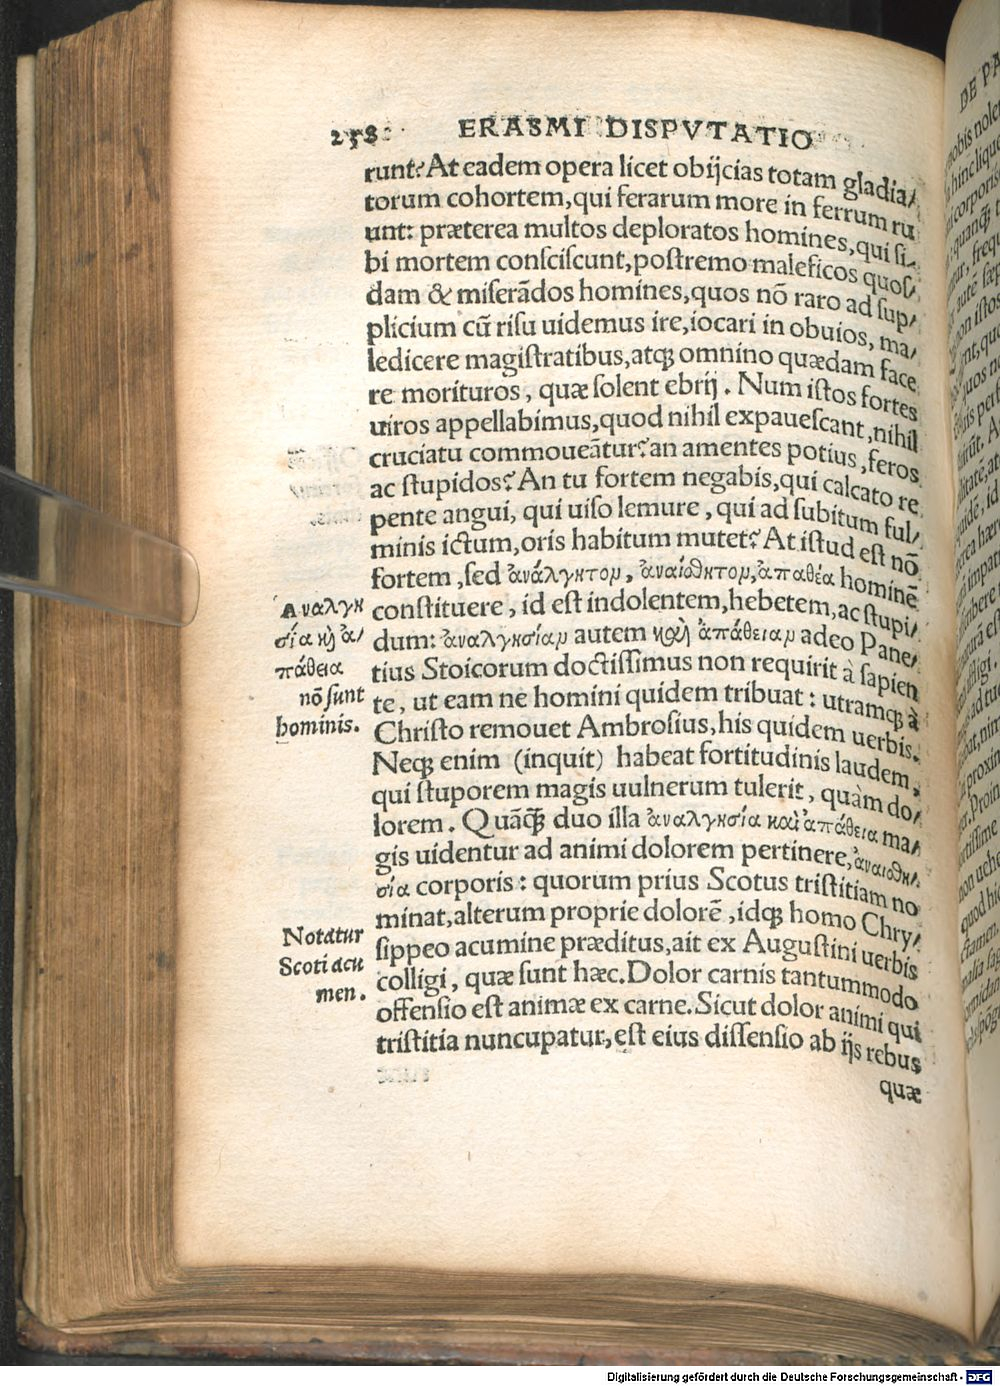 258 ERASMI DISPVTATIO
runt? At eadem opera licet obijcias totam gladia/
torum cohortem, qui ferarum more in ferrum ru
unt: præterea multos deploratos homines, qui si/
bi mortem consciscunt, postremo maleficos quos/
dam & miserādos homines, quos nō raro ad sup/
plicium cū risu uidemus ire, iocari in obuios, ma/
ledicere magistratibus, atqꝫ omnino quædam face
re morituros, quæ solent ebrij. Num istos fortes
uiros appellabimus, quod nihil expauescant, nihil
cruciatu commoueātur? an amentes potius, feros
ac stupidos? An tu fortem negabis, qui calcato re
pente angui, qui uiso lemure, qui ad subitum ful/
minis ictum, oris habitum mutet? At istud est nō
fortem, sed ἀνάλγητομ, ἀναίσθητομ, ἀπαθέα hominē
constituere, id est indolentem, hebetem, ac stupi/
dum: ἀναλγησίαμ autem καὶ ἀπάθειαμ adeo Pane/
tius Stoicorum doctissimus non requirit à sapien
te, ut eam ne homini quidem tribuat: utramqꝫ à
Christo remouet Ambrosius, his quidem uerbis.
Neqꝫ enim (inquit) habeat fortitudinis laudem,
qui stuporem magis uulnerum tulerit, quàm do/
lorem. Quāqꝫ duo illa ἀναλγησία καὶ ἀπάθεια ma/
gis uidentur ad animi dolorem pertinere, ἀναισθη/
σία corporis: quorum prius Scotus tristitiam no
minat, alterum proprie dolorē, idqꝫ homo Chry/
sippeo acumine præditus, ait ex Augustini uerbis
colligi, quæ sunt hæc. Dolor carnis tantummodo
offensio est animæ ex carne. Sicut dolor animi qui
tristitia nuncupatur, est eius dissensio ab ijs rebus
quæ
Αναλγη
σία καὶ ἀ/
πάθεια
nō sunt
hominis.
Notatur
Scoti acu
men.
DE PA
Digitalisierung gefördert durch die Deutsche Forschungsgemeinschaft - DFG